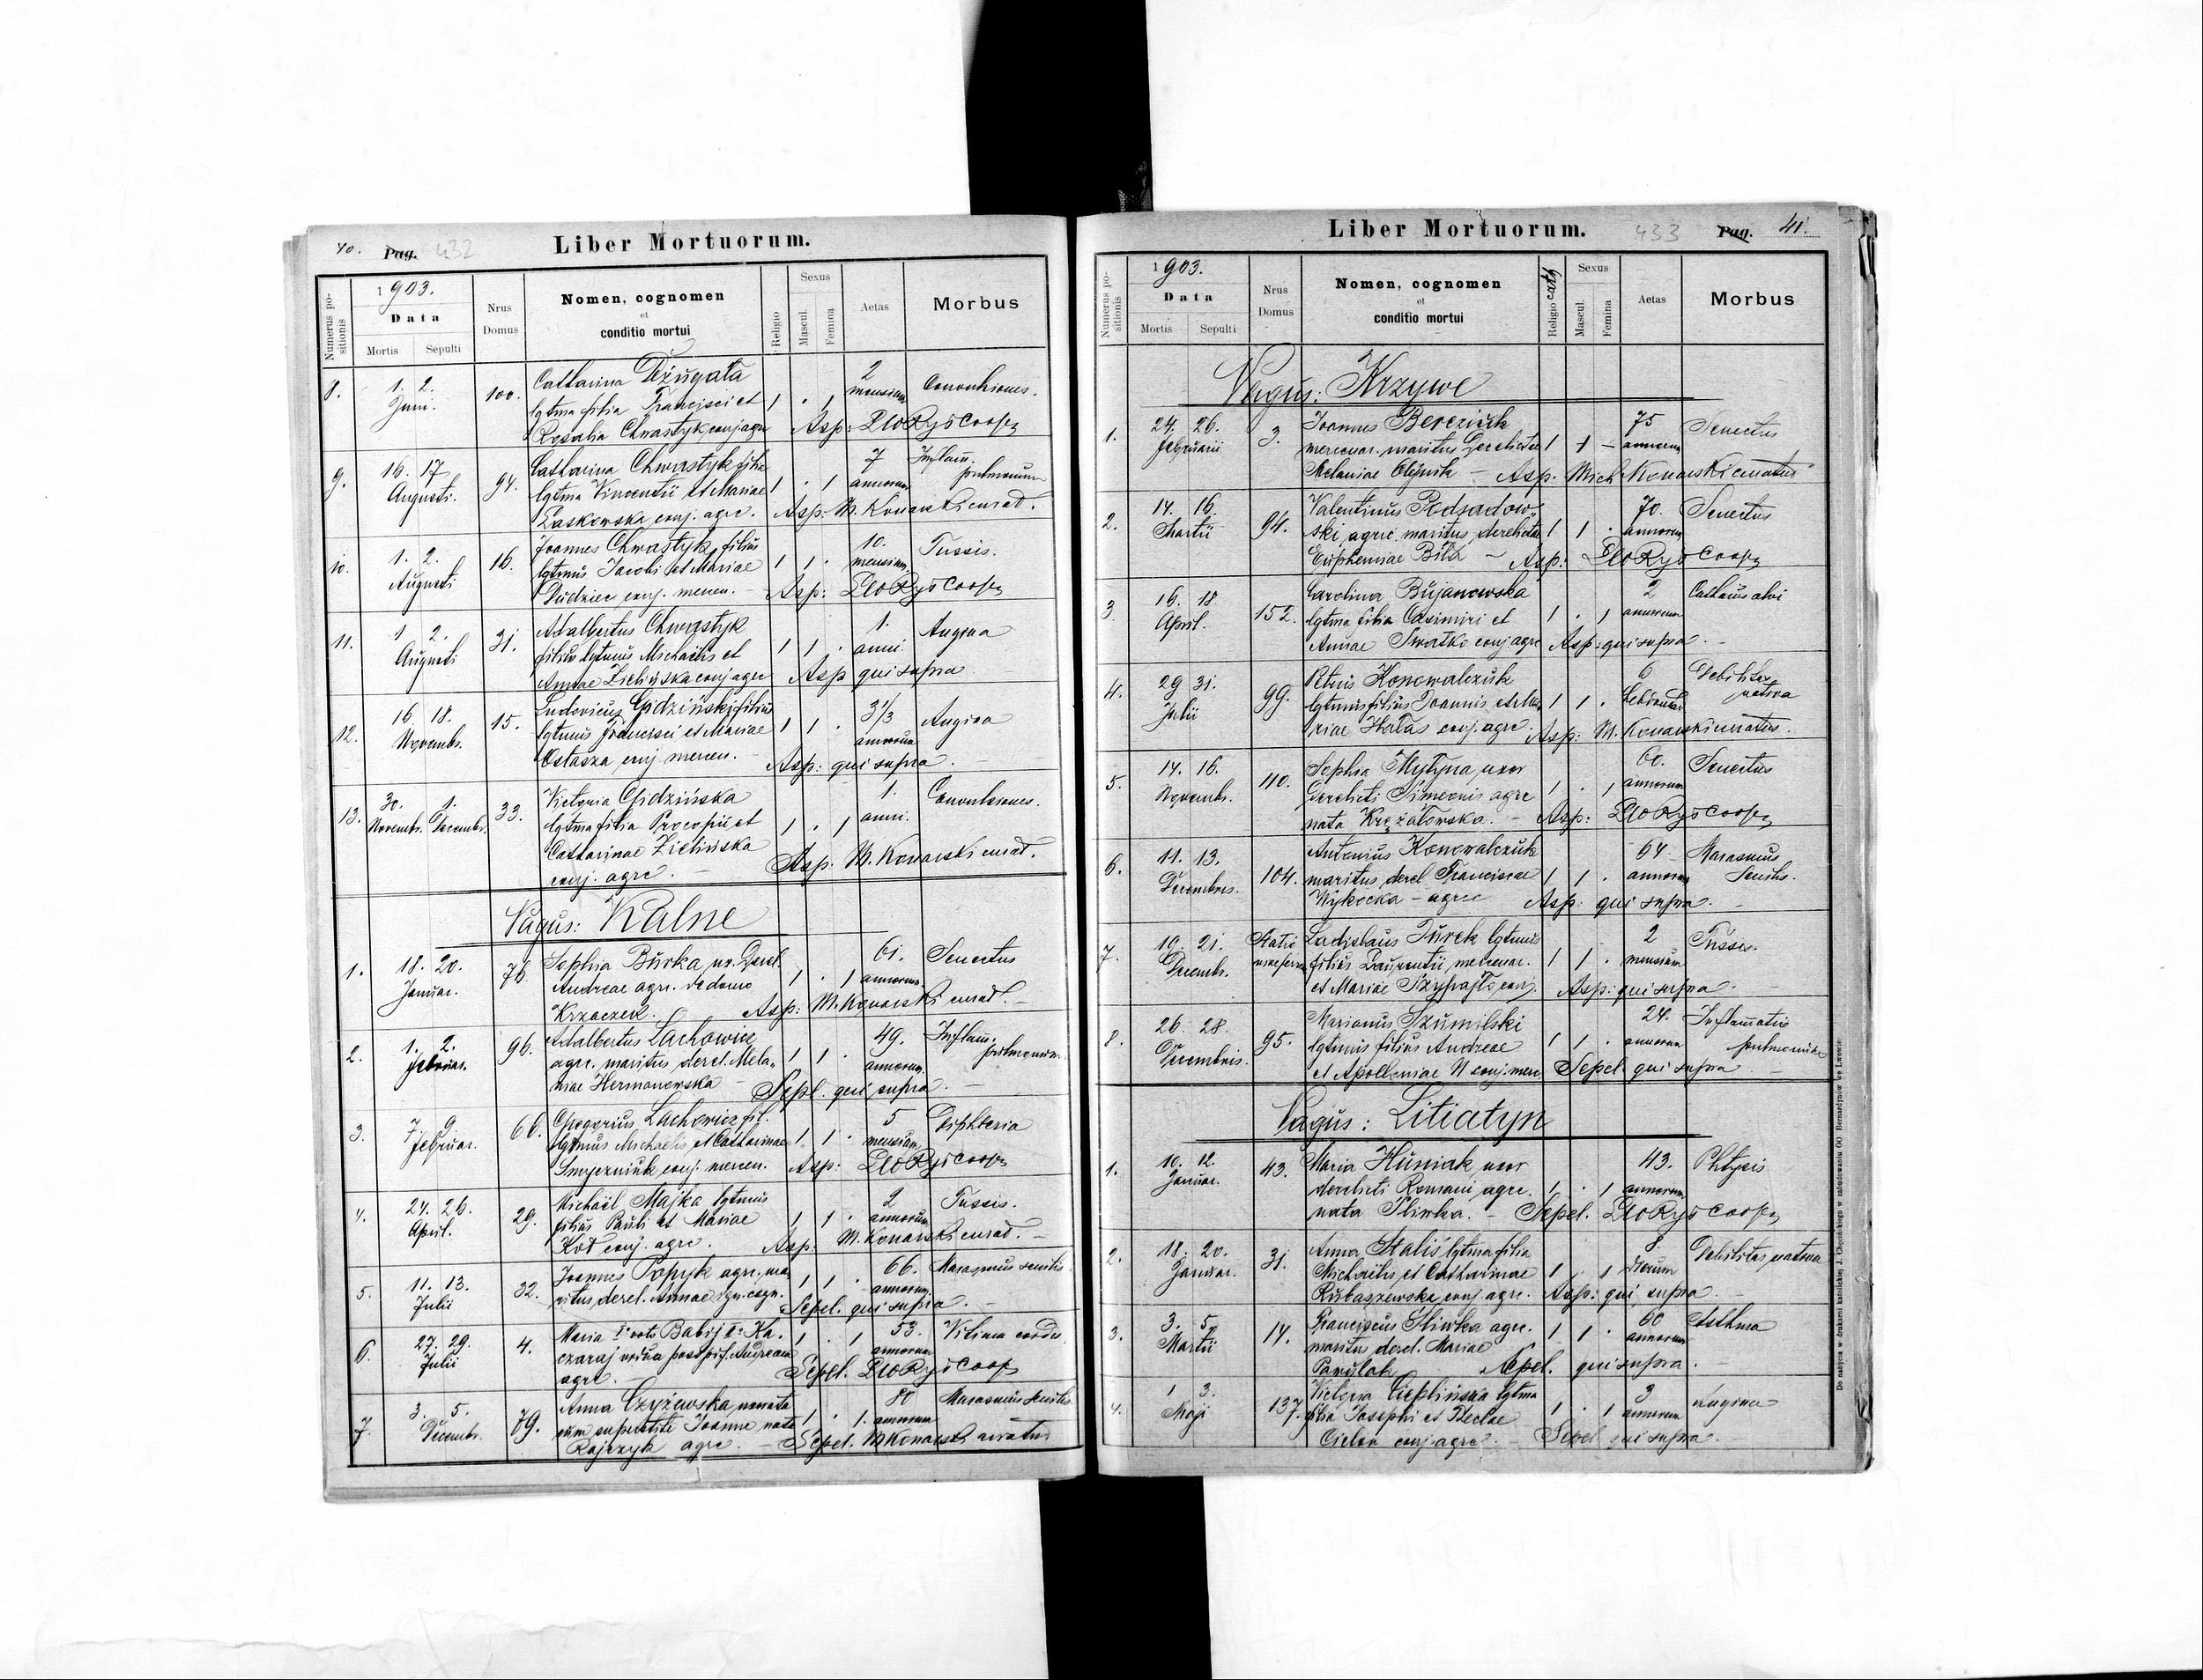 40. Pag. 432
Liber Mortuorum.
Numerus positionis
1903.
Data
Mortis Sepulti
Nrus Domus
Nomen, cognomen
et
conditio mortui
Religio
Sexus
Mascul. Femina
Aetas
Morbus
8. 1. 2. Juni. 100. Catharina Dżugała 2 mensium Convulsiones.
lgtma filia Francisci et 1 . 1
Rosalia Chwastyk conj agre Asp: Leo Ryś Coop
9. 16. 17 Augusti. 94. Catharina Chwastyk filia 7 annorum Inflam. pulmonum
lgtma Vincentii et Mariae 1 . 1
Laskowska conj. agre. Asp: M. Konarski curat.
10. 1. 2. Augusti 16. Joannes Chwastyk filius 10. mensium Tussis.
lgtmus Jacobi et Mariae 1 1 .
Dudziec conj. mercen. - Asp: Leo Ryś Coop
11. 1 2. Augusti 31. Adalbertus Chwastyk 1. anni Angina
filius lgtmus Michaelis et 1 1 .
Annae Zielińska conj agre Asp qui supra
12. 16. 18. Novembr. 15. Ludovicus Gidziński filius 3 1/3 annorum Angina
lgtmus Francisci et Mariae 1 1 .
Ostasza conj mercen. - Asp: qui supra. -
13. 30. Novembr. 1. Decembr. 33. Victoria Gidzińska 1. anni. Convulsiones.
lgtma filia Procopii et 1 . 1
Catharinae Zielińska
conj. agre. - Asp: M. Konarski curat.
Pagus: Kalne
1. 18. 20. Januar. 76. Sophia Burka ux. derel. 61. annorum Senectus
Andreae agre. de domo 1 . 1
Krzaczek. Asp: M. Konarski curat. -
2. 1. 2. Februar. 96. Adalbertus Lachowicz 49. annorum. Inflam. pulmonum
agre. maritus derel. Mela- 1 1 .
niae Hermanowska - Sepl. qui supra. -
3. 7. 9. Februar. 66. Gregorius Lachowicz fil. 5 mensium Diphteria
lgtmus Michaelis et Catharinae 1 1 .
conj. mercen. Asp: Leo Ryś coop
4. 24. 26. April. 29. Michaël Majka lgtmus 2 annorum Tussis.
filius Pauli et Mariae 1 1 .
Kot conj. agre. Asp: M. Konarski curat. -
5. 11. 13. Julii 32. Joannes Popyk agre. ma- 66. annorum. Marasmus senilis.
ritus derel. Annae ign. cogn. 1 1 . Sepel. qui supra. -
6. 27. 29. Julii 4. Maria Iº voto Babij IIº Ka- 53. annorum Vitium cordis
czaraj vidua post p.def. Andream 1 . 1
agre. Sepel. Leo Ryś Coop
7. 3. 5. Decembr. 79. Anna Czyżewska 80 annorum Marasmus senilis
cum superstite Joanne nata 1 . 1.
Rajczyk agre. - Sepel. M Konarski curatus
Liber Mortuorum. 433 Pag. 41.
Numerus positionis
1903.
Data
Mortis Sepulti
Nrus Domus
Nomen, cognomen
et
conditio mortui
Religio cath
Sexus
Mascul. Femina
Aetas
Morbus
Pagus: Krzywe
1. 24. 26. Februarii 3. Joannes Bereziuk 75 annorum Senectus
mercenar. maritus derelictae 1 1 -
Melaniae Olejnik - Asp. Mich Konarski curatus
2. 14. 16. Martii 94. Valentinus Podsadow- 70. annorum Senectus
ski agre. maritus derelictae 1 1 .
Euphemiae Bila - Asp: Leo Ryś Coop
3. 16. 18. April. 152. Carolina Bujanowska 2 annorum Catharus alvi
lgtma filia Casimiri et 1 . 1
Annae Swatko conj agre Asp: qui supra. -
4. 29 31. Julii 99. Petrus Konowalczuk 6 hebdomad. Debilitas nativa
lgtmus filius Joannis et Ma- 1 1 .
riae Hałas conj. agre. Asp: M. Konarski curatus.
5. 14. 16. Novembr. 110. Sophia Mytyna uxor 60. annorum Senectus
derelicti Simeonis agre 1 . 1
nata Krężałowska. - Asp: Leo Ryś Coop
6. 11. 13. Decembris. 104. Antonius Konowalczuk 64 annorum Marasmus Senilis.
maritus derel Franciscae 1 1 .
Wykocka - agre Asp: qui supra. -
7. 19. 21. Decembr. Statio Ladislaus Turek lgtmus 2 mensium Tussis.
filius Laurentii mercenar. 1 1 .
et Mariae Szypajło conj. Asp: qui supra.
8. 26. 28. Decembris. 95. Marianus Szumilski 24. annorum Inflamatio pulmonum
lgtmus filius Andreae 1 1 .
et Apolloniae N conj. merc. Sepel qui supra. -
Pagus: Litiatyn
1. 10. 12. Januar. 43. Maria Huniak uxor 43. annorum Phtysis
derelicti Romani agre. 1 . 1
nata Śliwka. - Sepel. Leo Ryś Coop
2. 18. 20. Januar. 31. Anna Staliś lgtma filia 8. dierum Debilitas nativa
Michaelis et Catharinae 1 . 1
Rubaszewska conj. agre. Asp: qui supra. -
3. 3. 5. Martii 14. Franciscus Śliwka agre. 60 annorum Asthma
maritus derel. Mariae 1 1 .
Pawulak Sepel. qui supra. -
4. 1 3. Maji 137. Victoria Cieplińska lgtma 3 annorum Angina
filia Josephi et Theclae 1 . 1
Cielon conj agre. - Sepel qui supra.
Do nabycia w drukarni katolickiej J. Chęcińskiego w zabudowaniu OO Bernardynów we Lwowie